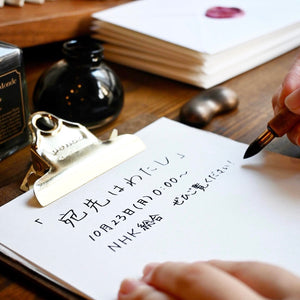 「宛先はわたし」
10月23日(月)0:00〜
NHK総合
ぜひご覧ください!